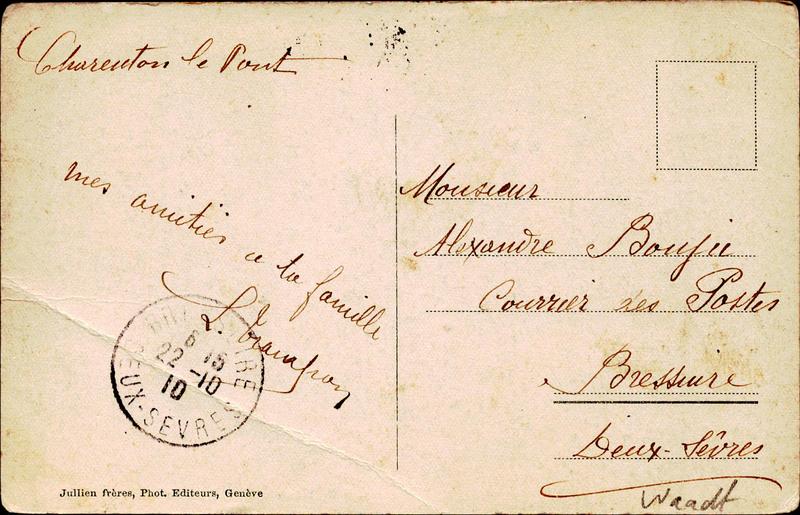 Charenton le Pont
mes amitiés à la famille
L.
BRESSUIRE
6 15
22 -10
10
DEUX-SÈVRES
Jullien frères, Phot. Editeurs, Genève
Monsieur
Alexandre Boujie
Courrier des Postes
Bressuire
Deux-Sèvres
Waadt